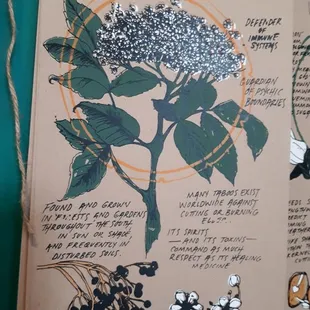 DEFENDER
OF
IMMUNE
SYSTEMS
GUARDIAN
OF PSYCHIC
BOUNDARIES
FOUND AND GROWN
IN FORESTS AND GARDENS
THROUGHOUT THE SOUTH
IN SUN OR SHADE,
AND FREQUENTLY IN
DISTURBED SOILS.
MANY TABOOS EXIST
WORLDWIDE AGAINST
CUTTING OR BURNING
ELDER.
ITS SPIRITS
—AND ITS TOXINS—
COMMAND AS MUCH
RESPECT AS ITS HEALING
MEDICINE